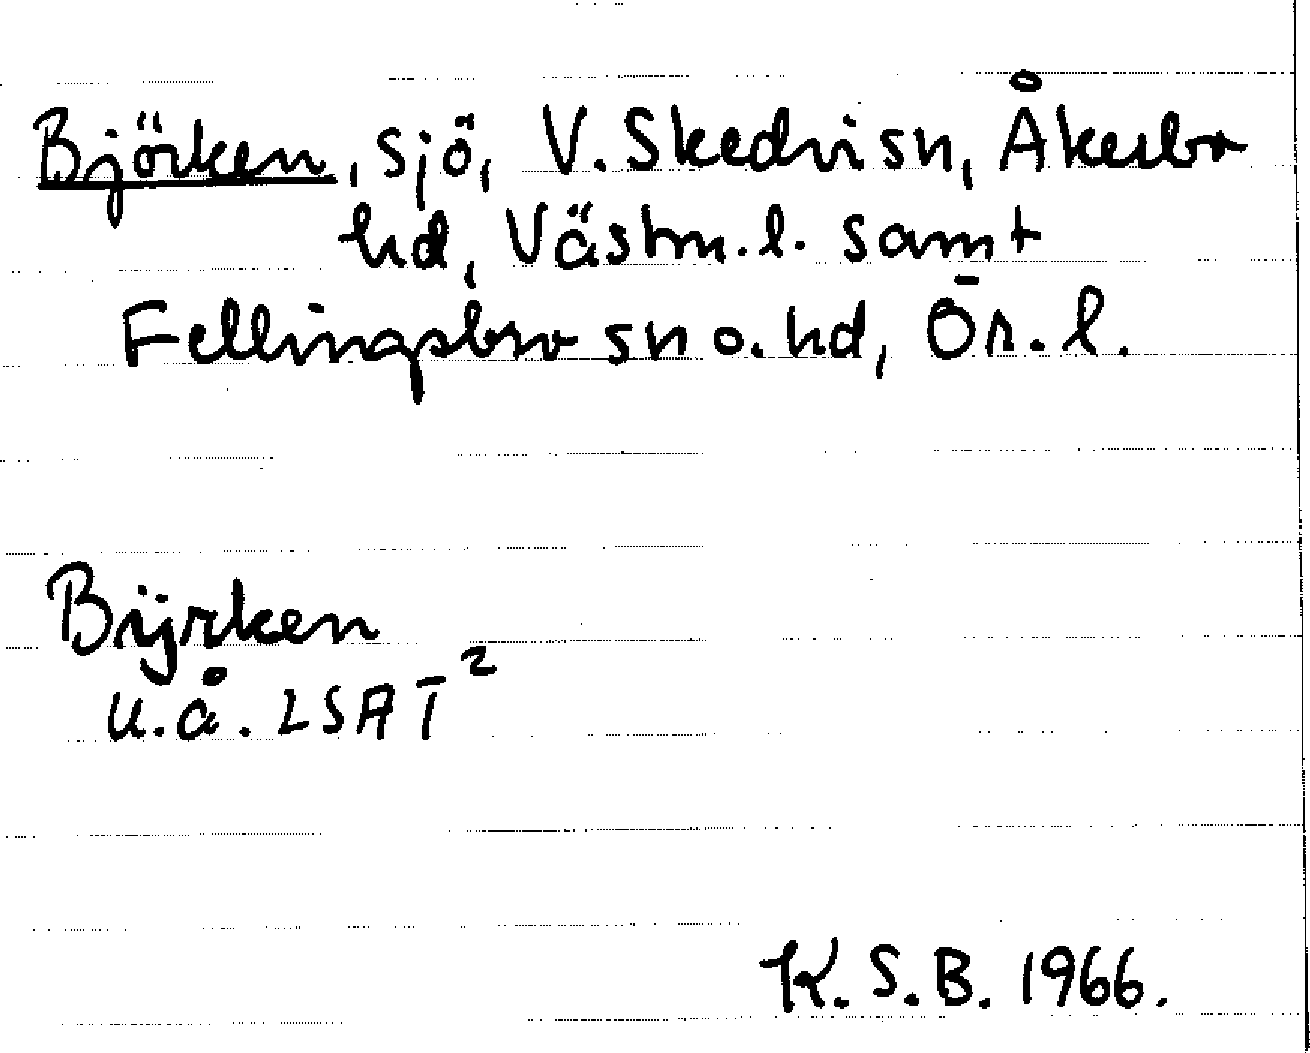 Björken, sjö, V. Skedvi sn, Åkerbo
hd, Västm. l. samt
Fellingsbro sn o. hd, Ör. l.
Bijrken
u.å. LSA T²
K. S. B. 1966.